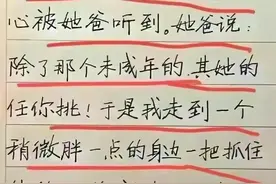 心被她爸听到。她爸说:
除了那个未成年的,其她的
任你挑!于是我走到一个
稍微胖一点的身边一把抓住